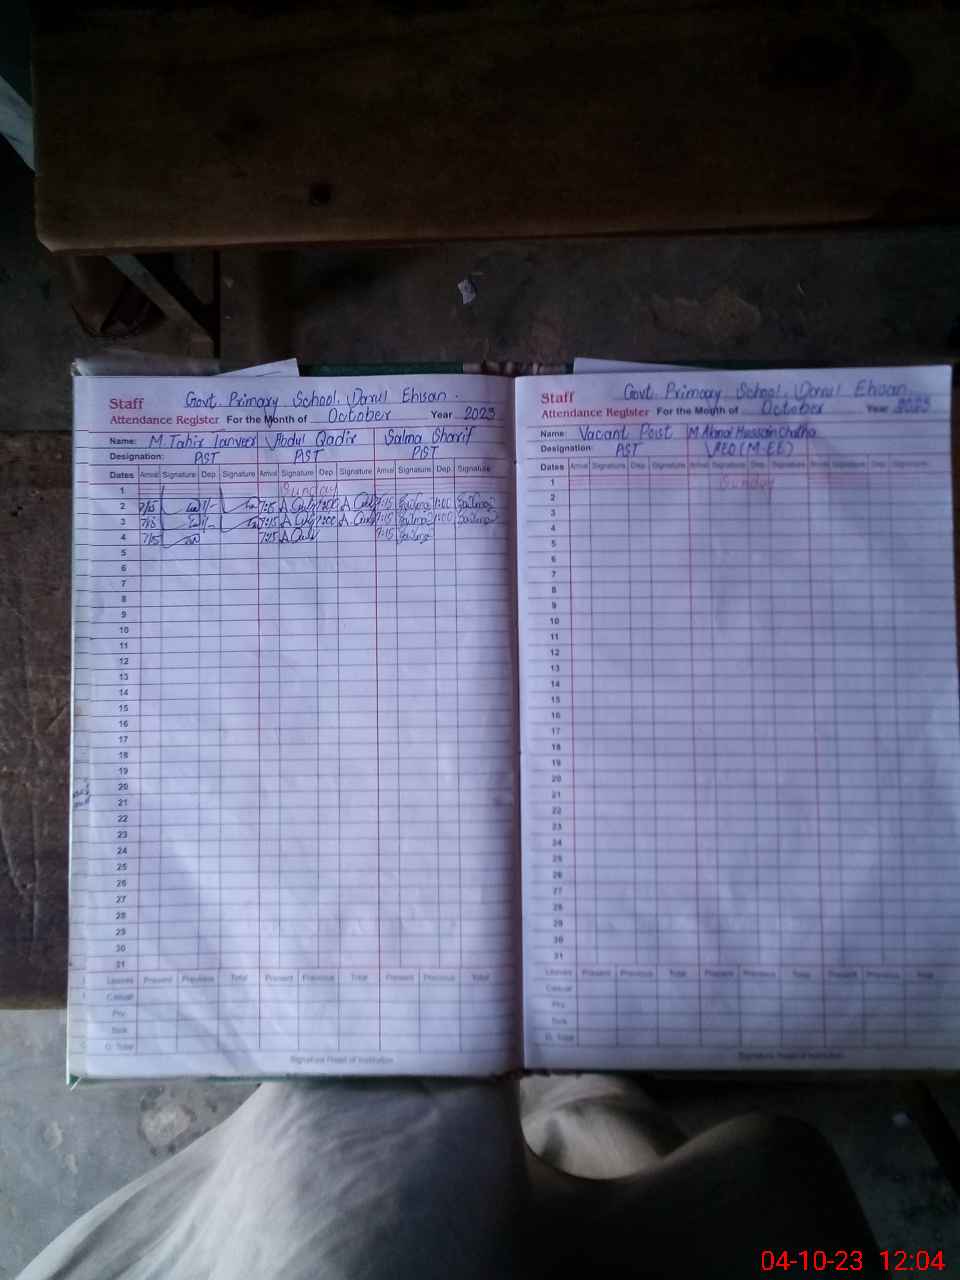 Staff Govt. Primary School Darul Ehsan.
Attendance Register For the Month of October Year 2023
Name: M. Tahir Tanveer Abdul Qadir Salma Sharif
Designation: PST PST PST
Dates Arrival Signature Dep. Signature Arrival Signature Dep Signature Arrival Signature Dep Signature
1 Sunday
2 7/15 7:15 A Qadir A Qadir 7:15 Salma 1:00 Salma
3 7/15 7:15 A Qadir A Qadir 7:15 Salma 1:00 Salma
4 7/15 7:15 A Qadir 7:15 Salma
5
6
7
8
9
10
11
12
13
14
15
16
17
18
19
20
21
22
23
24
25
26
27
28
29
30
31
Leaves Present Previous Total Present Previous Total Present Previous Total
Casual
Prv.
Sick
G. Total
Signature Head of Institution
Staff Govt. Primary School Darul Ehsan
Attendance Register For the Month of October Year 2023
Name: Vacant Post M. Hussain Chatha
Designation: PST (M-EE)
Dates Arrival Signature Dep. Signature Arrival Signature Dep. Signature
1 Sunday
2
3
4
5
6
7
8
9
10
11
12
13
14
15
16
17
18
19
20
21
22
23
24
25
26
27
28
29
30
31
Leaves Present Previous Total Present Previous Total Present Previous Total
Casual
Prv.
Sick
G. Total
Signature Head of Institution
04-10-23 12:04